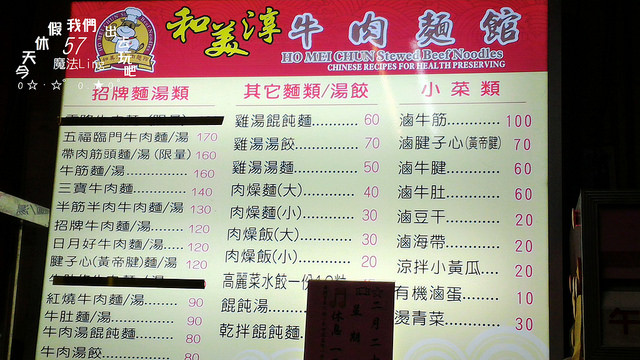 今天休假 我們出去玩吧
57
魔法Line
和美淳牛肉麵館
HO MEI CHUN Stewed Beef Noodles
CHINESE RECIPES FOR HEALTH PRESERVING
招牌麵湯類
五福臨門牛肉麵/湯 170
帶肉筋頭麵/湯(限量) 160
牛筋麵/湯............ 160
三寶牛肉麵............ 140
半筋半肉牛肉麵/湯 130
招牌牛肉麵/湯...... 120
日月好牛肉麵/湯.... 120
腱子心(黃帝腱)麵/湯 120
紅燒牛肉麵/湯....... 90
牛肚麵/湯............ 90
牛肉湯餛飩麵........ 80
牛肉湯餃............. 80
其它麵類/湯餃
雞湯餛飩麵........... 60
雞湯湯餃.............. 70
雞湯湯麵.............. 50
肉燥麵(大)............ 40
肉燥麵(小)............ 30
肉燥飯(大)............ 30
肉燥飯(小)............ 20
高麗菜水餃一份
餛飩湯
乾拌餛飩麵
小菜類
滷牛筋.............. 100
滷腱子心(黃帝腱) 70
滷牛腱.............. 60
滷牛肚.............. 60
滷豆干.............. 20
滷海帶.............. 20
涼拌小黃瓜.... 20
有機滷蛋........ 10
燙青菜............ 30